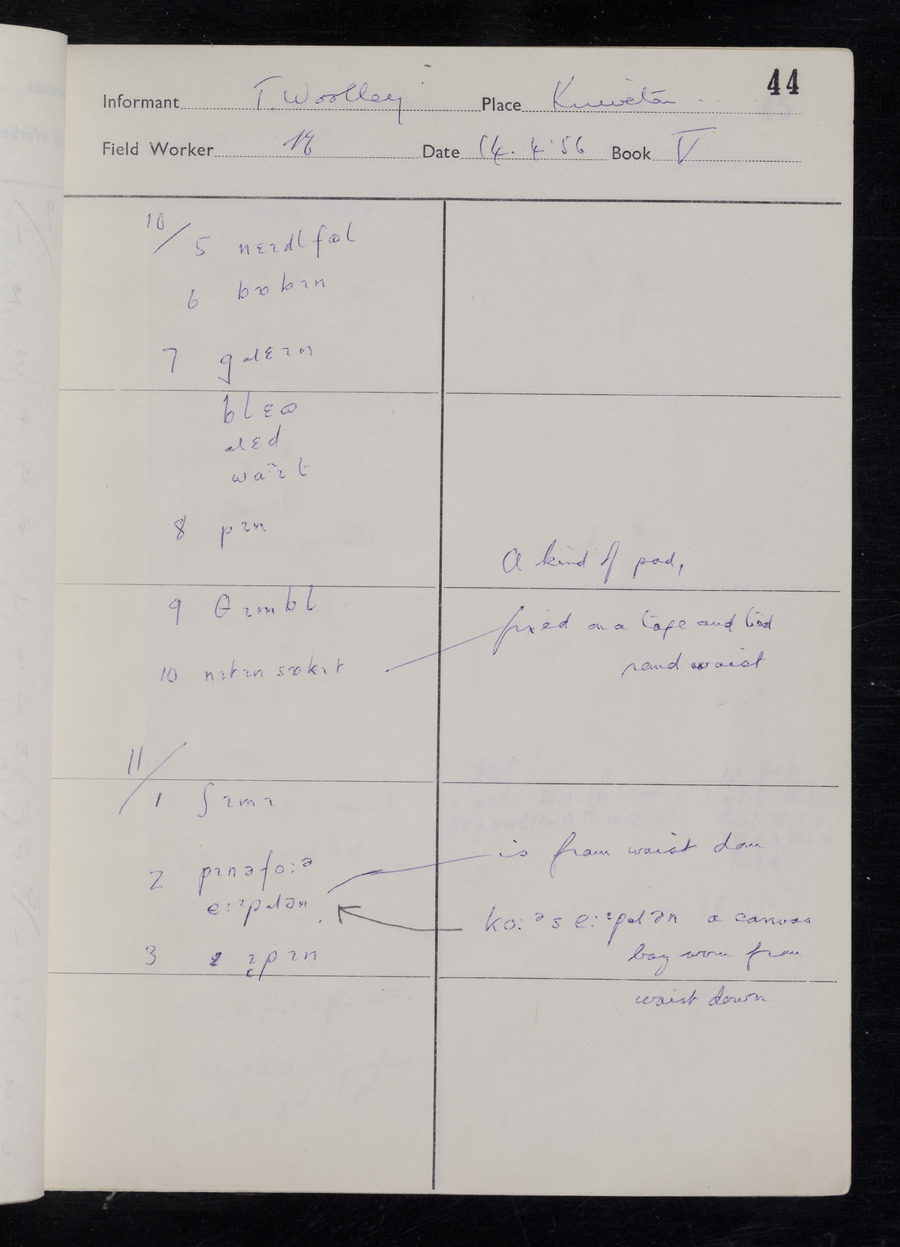 44
Informant T. Woolley Place Kniveton
Field Worker Date 14.4.56 Book V
10/ 5 nɪɪdlfəl
6 bɒbɪn
7 gɹɛɪn
blɛʊ
ɹɛd
waɪt
8 pɪn
A kind of pad,
9 θɪmbl
fixed on a tape and tied
10 nɪtɪn sɒkɪt
round waist
11/
1 ʃɪmɪ
is from waist down
2 pɪnəfo:ə
e:ɪpɹən
ko:əs e:ɪpɹən a canvas
bag worn from
3 ɪpɪn
waist down